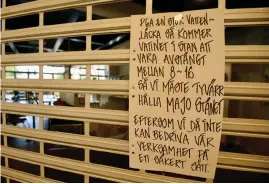 PGA EN STOR VATTEN-
LÄCKA SÅ KOMMER
VATTNET I STAN ATT
VARA AVSTÄNGT
MELLAN 8-16
SÅ VI MÅSTE TYVÄRR
HÅLLA MAJO STÄNGT
EFTERSOM VI DÅ INTE
KAN BEDRIVA VÅR
VERKSAMHET PÅ
ETT SÄKERT SÄTT.